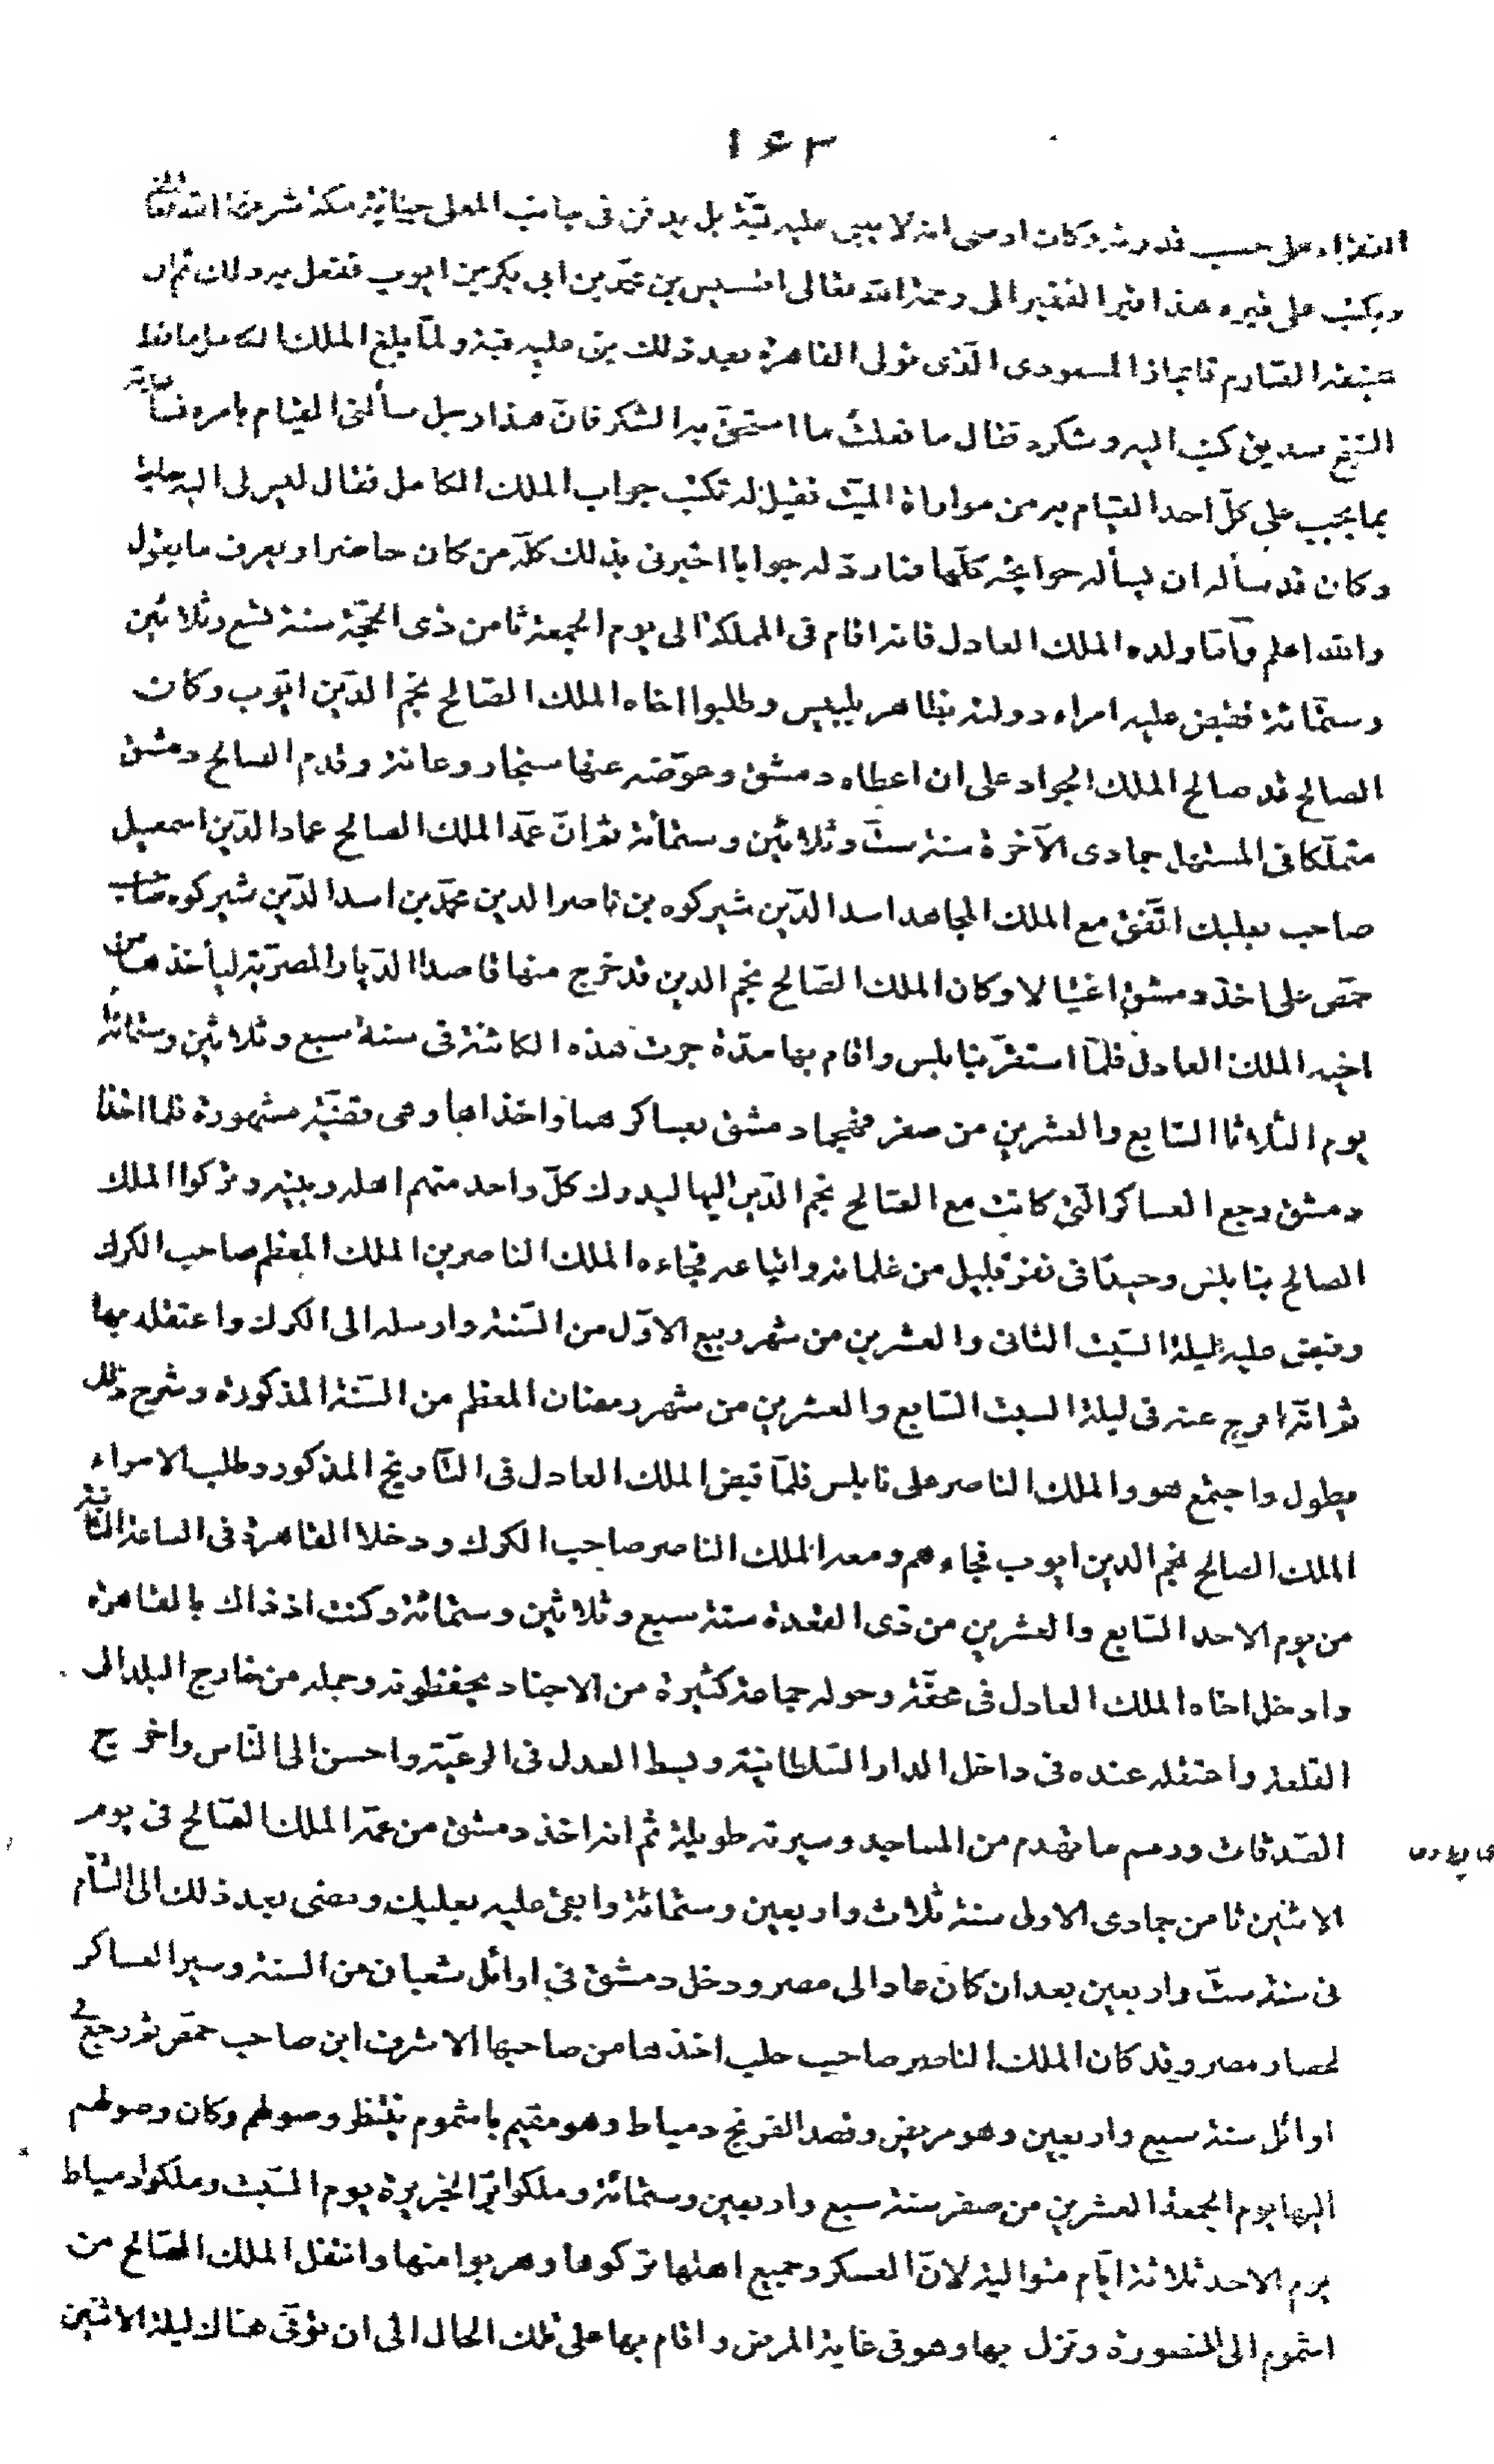 ١٤٣
الفقراء على حسب قدرته وكان اوصى انه لا يبنى عليه قبّة بل يدفن فى جانب المعلى جبّانة مكة شرفها الله تعالى
ويكتب على قبره هذا قبر الفقير الى رحمة الله تعالى اقسيس بن محمّد بن ابى بكر بن ايوب ففعل به ذلك ثم ان
عتيقه الصّارم قايماز المسعودى الّذى تولى القاهرة بعد ذلك بنى عليه قبّة ولمّا بلغ الملك الكامل ما فعله
الشيخ صديق كتب اليه وشكره فقال ما فعلت ما استحقّ به الشكر فانّ هذا رجل سألنى القيام بامره فساعدته
بما يجب على كلّ احد القيام به من مواراة الميّت فقيل له تكتب جواب الملك الكامل فقال ليس لى اليه حاجة
وكان قد سأله ان يسأله حوائجه كلّها فما ردّ له جوابا اخبرنى بذلك كلّه من كان حاضرا ويعرف ما يقول
والله اعلم وأمّا ولده الملك العادل فانه اقام فى المملكة الى يوم الجمعة ثامن ذى الحجّة سنة تسع وثلاثين
وستمّائة فقبض عليه امراء دولته بظاهر بلبيس وطلبوا اخاه الملك الصّالح نجم الدّين ايّوب وكان
الصالح قد صالح الملك الجواد على ان اعطاه دمشق وعوّضه عنها سنجار وعانة وقدم الصالح دمشق
متملّكا فى المستهل جمادى الآخرة سنة ستّ وثلاثين وستمائة ثم انّ عمّه الملك الصالح عماد الدّين اسمعيل
صاحب بعلبك اتّفق مع الملك المجاهد اسد الدّين شيركوه بن ناصر الدين محمّد بن اسد الدّين شيركوه صاحب
حمص على اخذ دمشق اغتيالا وكان الملك الصّالح نجم الدين قد خرج منها قاصدا الدّيار المصرّية ليأخذها من
اخيه الملك العادل فلمّا استقرّ بنابلس واقام بها مدّة جرت هذه الكائنة فى سنة سبع وثلاثين وستمائة
يوم الثلاثا السّابع والعشرين من صفر فهجما دمشق بعساكرهما واخذاها وهى قضيّة مشهورة فلما اخذا
دمشق رجع العساكر التى كانت مع الصّالح نجم الدّين اليها ليدرك كلّ واحد منهم اهله وبيته وتركوا الملك
الصالح بنابلس وحيدًا فى نفر قليل من غلمانه واتباعه فجاءه الملك الناصر بن الملك المعظم صاحب الكرك
وقبض عليه ليلة السّبت الثانى والعشرين من شهر ربيع الاوّل من السّنة وارسله الى الكرك واعتقله بها
ثم انّه افرج عنه فى ليلة السبت السّابع والعشرين من شهر رمضان المعظم من السّنة المذكورة وشرح ذلك
يطول واجتمع هو والملك الناصر على نابلس فلمّا قبض الملك العادل فى التّاريخ المذكور وطلب الامراء
الملك الصالح نجم الدين ايوب فجاءهم ومعه الملك الناصر صاحب الكرك ودخلا القاهرة فى الساعة الثانية
من يوم الاحد السّابع والعشرين من ذى القعدة سنة سبع وثلاثين وستمائة وكنت اذ ذاك بالقاهرة
وادخل اخاه الملك العادل فى محفّة وحوله جماعة كثيرة من الاجناد يحفظونه وحمله من خارج البلد الى
القلعة واعتقله عنده فى داخل الدار السّلطانيّة وبسط العدل فى الرعيّة واحسن الى النّاس واخرج
الصّدقات ورمم ما تهدم من المساجد وسيرته طويلة ثم انه اخذ دمشق من عمّه الملك الصّالح فى يوم
الاثنين ثامن جمادى الاولى سنة ثلاث واربعين وستمائة وابقى عليه بعلبك ومضى بعد ذلك الى الشّأم
فى سنة ستّ واربعين بعد ان كان عاد الى مصر ودخل دمشق فى اوائل شعبان من السنة وسير العساكر
لحصار مصر وقد كان الملك الناصر صاحب حلب اخذها من صاحبها الاشرف ابن صاحب حمص ثم رجع فى
اوائل سنة سبع واربعين وهو مريض وقصد الفرنج دمياط وهو مقيم باشموم ينتظر وصولهم وكان وصولهم
اليها يوم الجمعة العشرين من صفر سنة سبع واربعين وستمائة وملكوا برّ الجزيرة يوم السّبت وملكوا دمياط
يوم الاحد ثلاثة ايّام متوالية لانّ العسكر وجميع اهلها تركوها وهربوا منها وانتقل الملك الصّالح من
اشموم الى المنصورة ونزل بها وهو فى غاية المرض واقام بها على تلك الحال الى ان توفّى هناك ليلة الاثنين